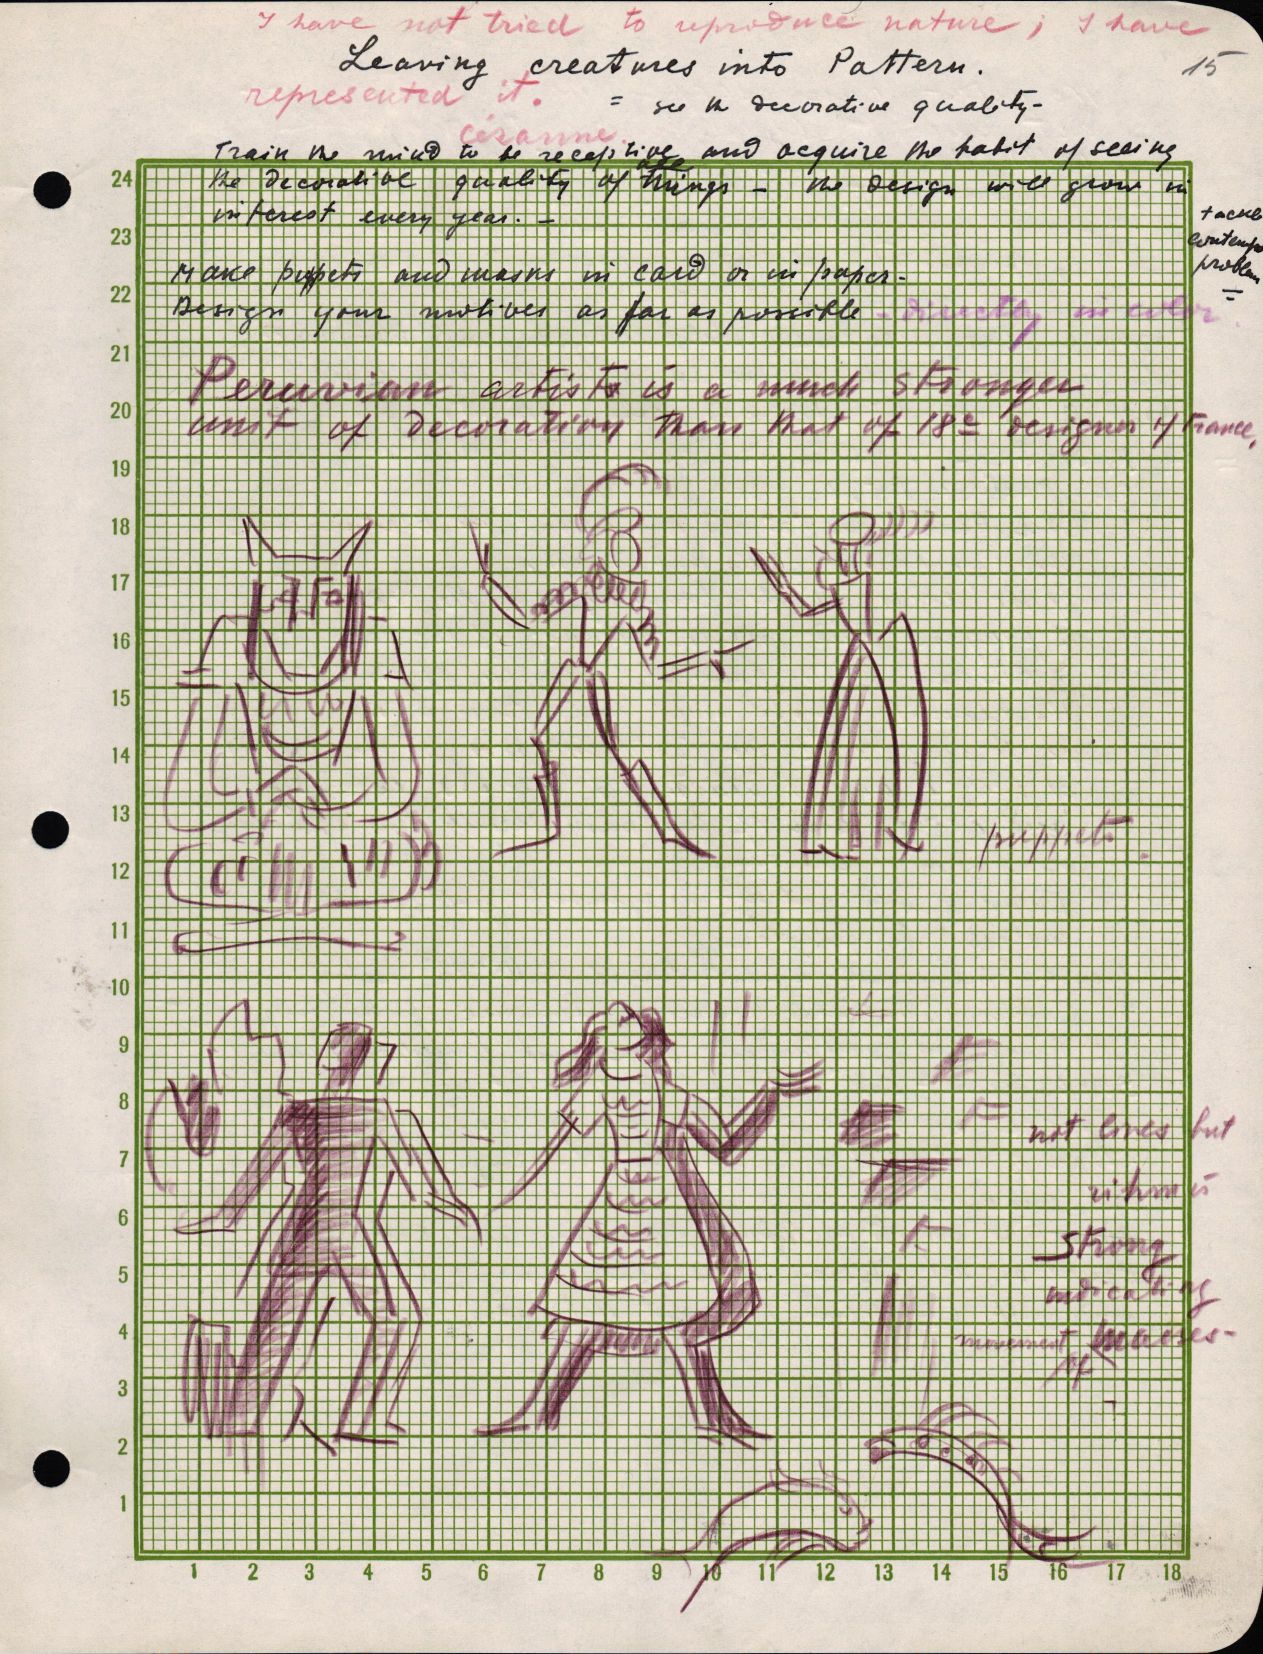 I have not tried to reproduce nature; I have
Leaving creatures into Pattern.
15
represented it.
= see the decorative quality-
Cézanne.
Train the mind to be receptive and acquire the habit of seeing
the decorative quality of things - the design will grow in
interest every year. -
tackle
contemp
problem
=
Make puppets and masks in card or in paper-
Design your motives as far as possible - directly in color.
Peruvian artists is a much stronger
unit of decoration than that of 18th designer of France,
puppets.
not lines but
rithm is
strong
indicating
movement of masses-
24
23
22
21
20
19
18
17
16
15
14
13
12
11
10
9
8
7
6
5
4
3
2
1
1 2 3 4 5 6 7 8 9 10 11 12 13 14 15 16 17 18